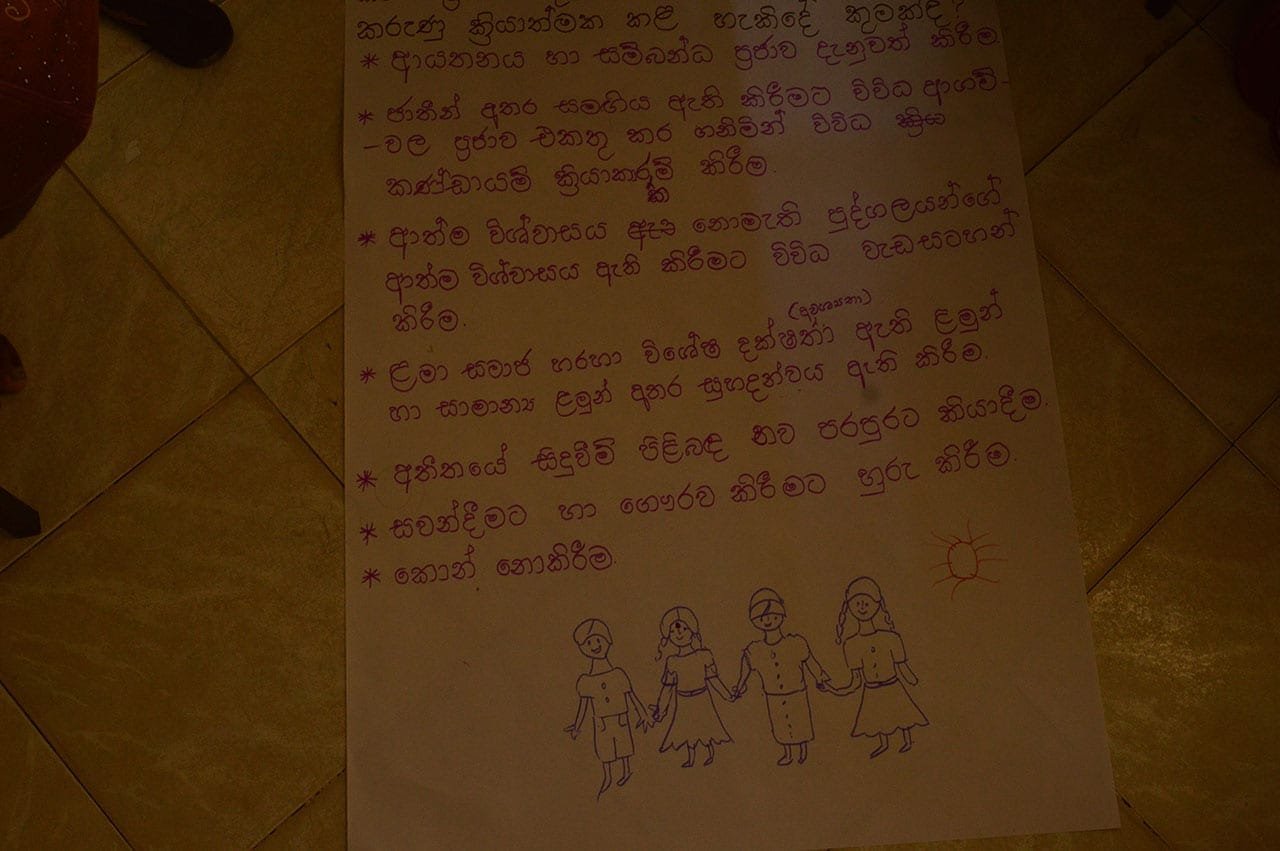 කරුණු ක්‍රියාත්මක කළ හැකිදේ කුමක්ද?
* ආයතනය හා සම්බන්ධ ප්‍රජාව දැනුවත් කිරීම
* ජාතීන් අතර සමඟිය ඇති කිරීමට විවිධ ආගම්-
-වල ප්‍රජාව එකතු කර ගනිමින් විවිධ
කණ්ඩායම් ක්‍රියාකාරකම් කිරීම.
* ආත්ම විශ්වාසය නොමැති පුද්ගලයන්ගේ
ආත්ම විශ්වාසය ඇති කිරීමට විවිධ වැඩසටහන්
කිරීම.
(අවශ්‍යතා)
* ළමා සමාජ හරහා විශේෂ දක්ෂතා ඇති ළමුන්
හා සාමාන්‍ය ළමුන් අතර සුහදත්වය ඇති කිරීම.
* අතීතයේ සිදුවීම් පිළිබඳ නව පරපුරට කියාදීම.
* සවන්දීමට හා ගෞරව කිරීමට හුරු කිරීම.
* කොන් නොකිරීම.